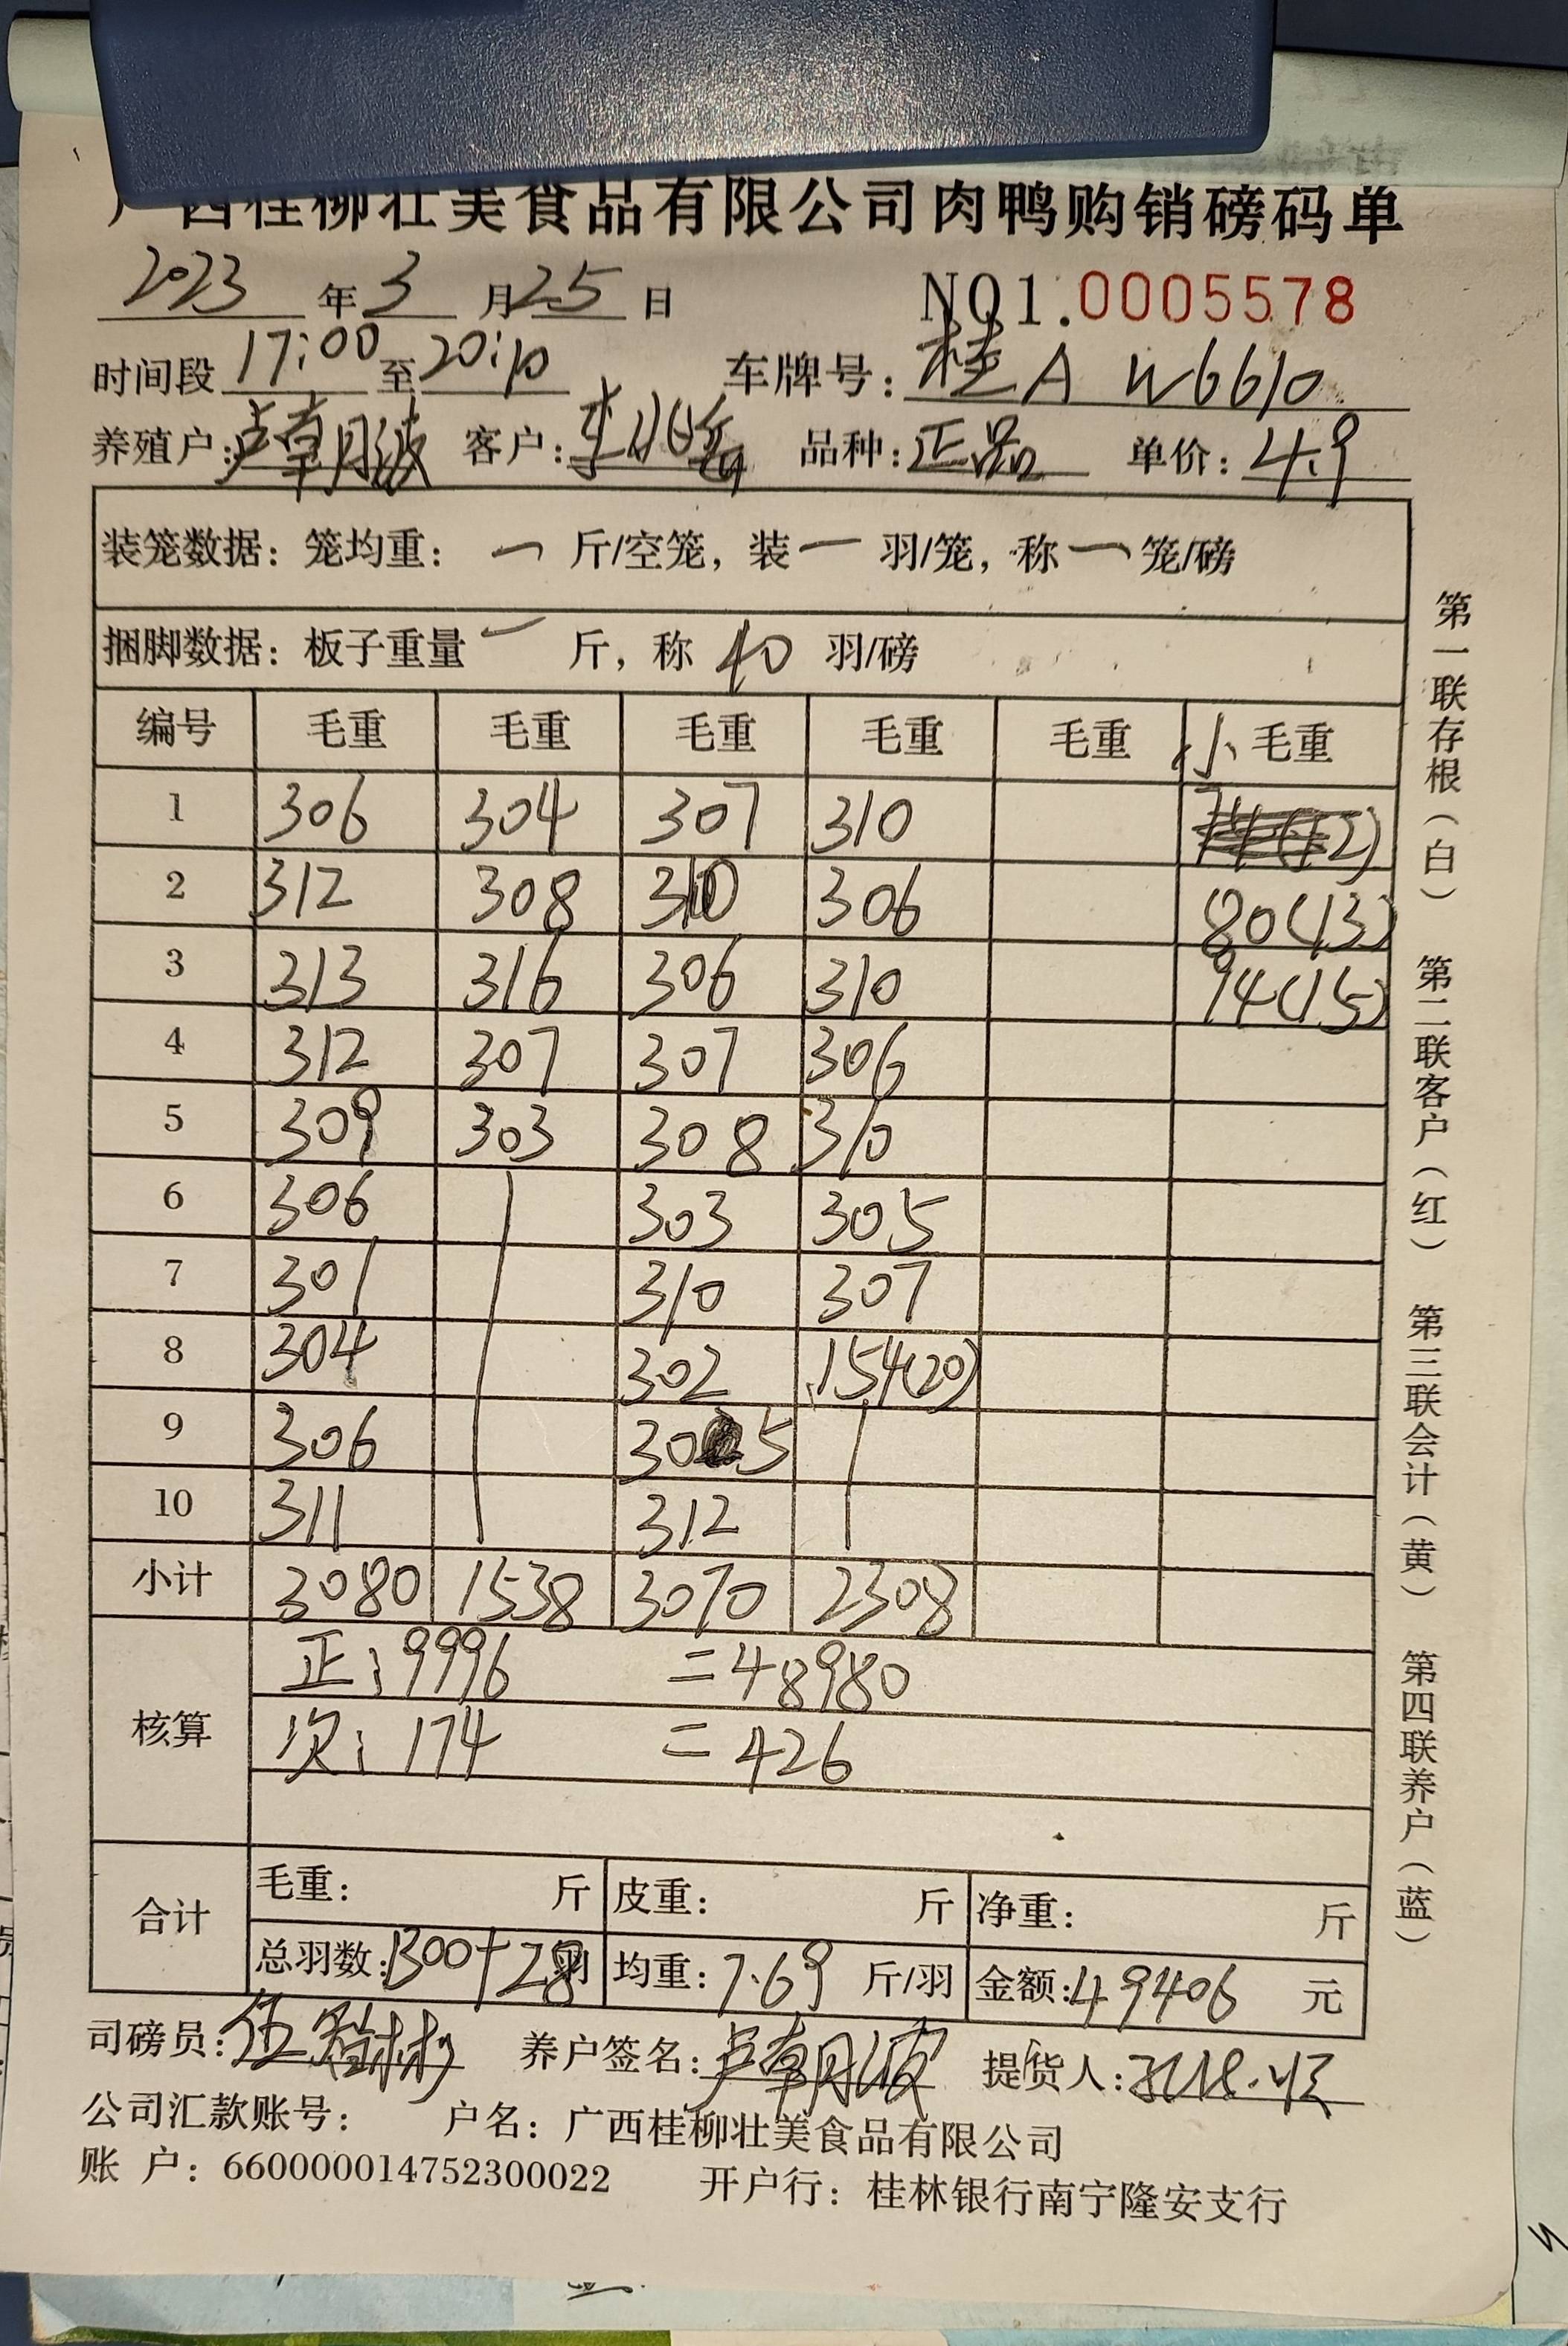 广西桂柳壮美食品有限公司肉鸭购销磅码单
2023 年 3 月 25 日 NO1.0005578
时间段 17:00 至 20:10 车牌号: 桂A W6610
养殖户: 卢朝波 客户: 品种: 正品 单价: 4.9
装笼数据: 笼均重: 一 斤/空笼, 装 一 羽/笼, 称 一 笼/磅
捆脚数据: 板子重量 一 斤, 称 40 羽/磅
编号 毛重 毛重 毛重 毛重 毛重 小 毛重
1 306 304 307 310
2 312 308 310 306 80(13)
3 313 316 306 310 94(15)
4 312 307 307 306
5 309 303 308 310
6 306 303 305
7 301 310 307
8 304 302 154(20)
9 306 305
10 311 312
小计 3080 1538 3070 2308
核算 正: 9996 =48980
次: 174 =426
合计 毛重: 斤 皮重: 斤 净重: 斤
总羽数: 1300+28 羽 均重: 7.69 斤/羽 金额: 49406 元
司磅员: 养户签名: 卢朝波 提货人:
公司汇款账号: 户名: 广西桂柳壮美食品有限公司
账 户: 660000014752300022 开户行: 桂林银行南宁隆安支行
第一联存根(白) 第二联客户(红) 第三联会计(黄) 第四联养户(蓝)